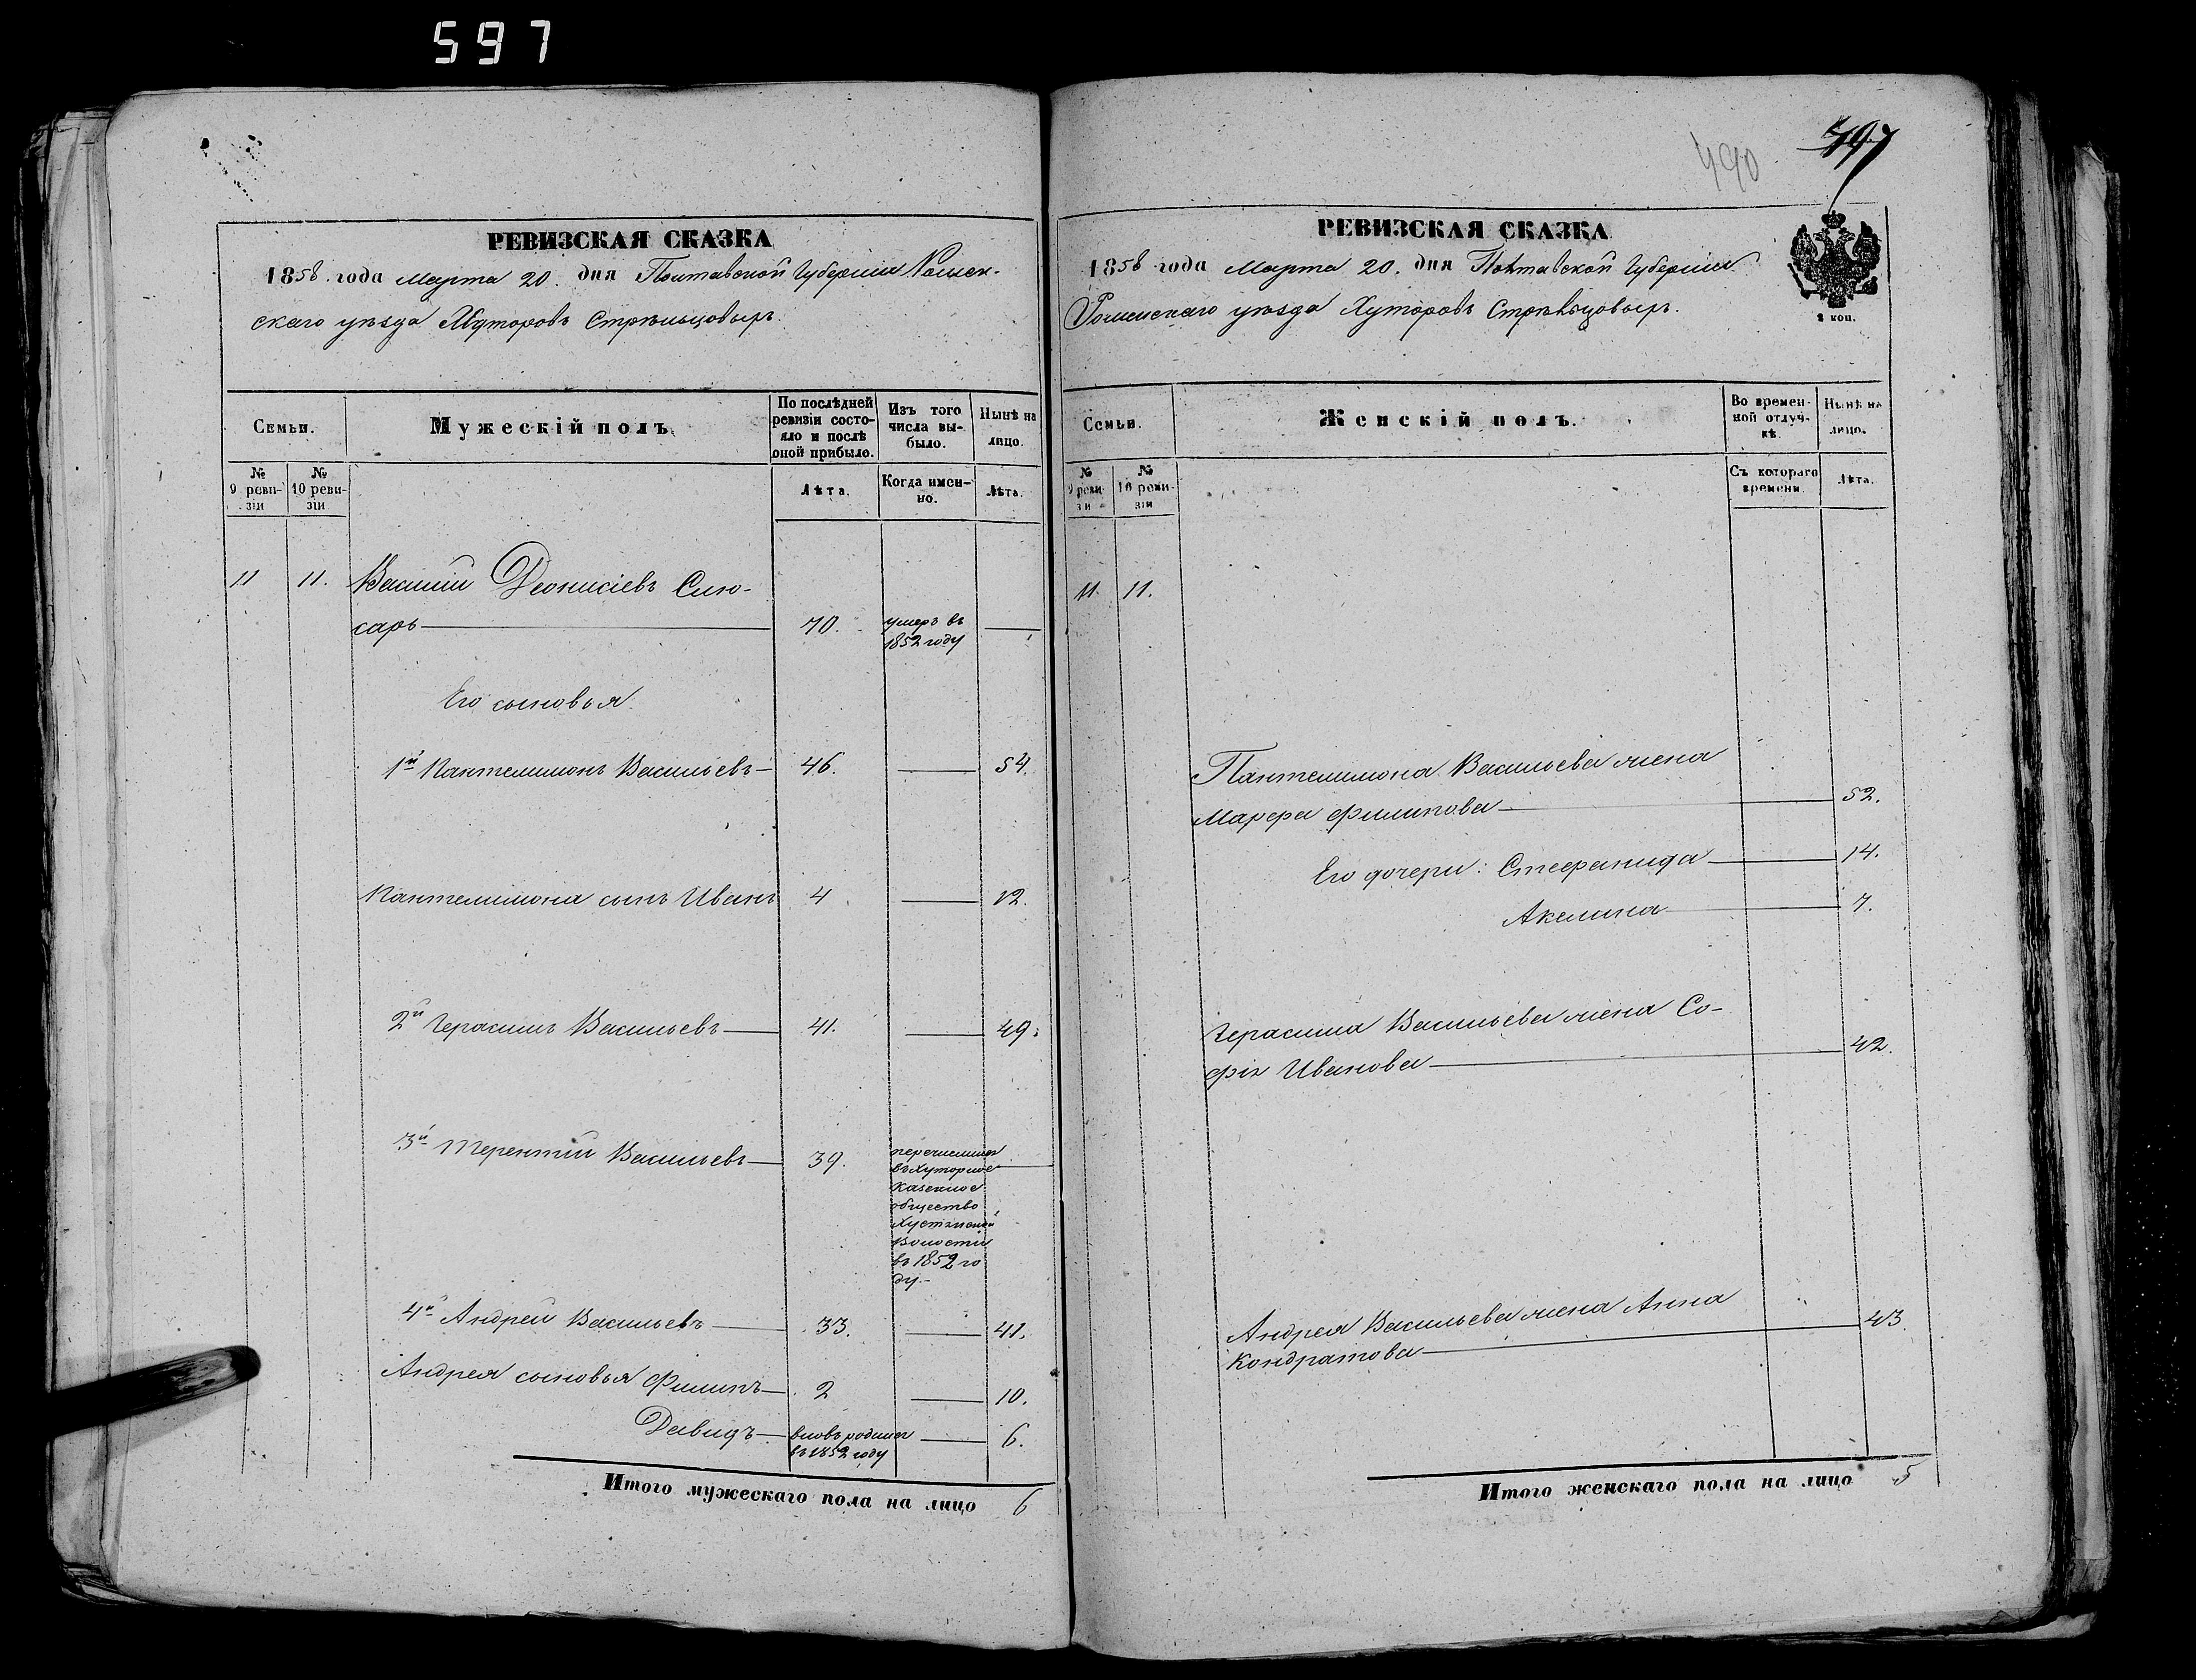 597
РЕВИЗСКАЯ СКАЗКА
1858. года Марта 20. дня Полтавской Губернии Ромен-
скаго уѣзда Хуторовъ Стрѣльцовыхъ.
Семьи.
Мужескій полъ.
По послѣдней ревизіи состояло и послѣ оной прибыло.
Изъ того числа выбыло.
Нынѣ на лицо.
№ 9 ревизіи
№ 10 ревизіи
Лѣта.
Когда именно.
Лѣта.
11 11. Василій Деонисіевъ Слю-
сарь 70. умеръ въ
1852 году
Его сыновья.
1й Пантелимонъ Васильевъ 46. 54.
Пантелимона сынъ Иванъ 4 12.
2й Герасимъ Васильевъ 41. 49.
3й Терентій Васильевъ 39. перечислился
въ Хуторное
казенное
общество
Волости
въ 1852 го
ду.
4й Андрей Васильевъ 33. 41.
Андрея сыновья Филипъ 2 10.
Давидъ вновь родился
въ 1852 году 6.
Итого мужескаго пола на лицо 6
490
497
РЕВИЗСКАЯ СКАЗКА
1858 года Марта 20. дня Полтавской Губерніи
Роменскаго уѣзда Хуторовъ Стрѣльцовыхъ.
2 коп.
Семьи.
Женскій полъ.
Во временной отлучкѣ.
Нынѣ на лицо.
№ 9 ревизіи
№ 10 ревизіи
Съ котораго времени.
Лѣта.
11. 11.
Пантелимона Васильева жена
Марфа Филипова 52.
Его дочери: Стефанида 14.
Акелина 7.
Герасима Васильева жена Со-
фія Иванова 42.
Андрея Васильева жена Анна
Кондратова 43.
Итого женскаго пола на лицо 5